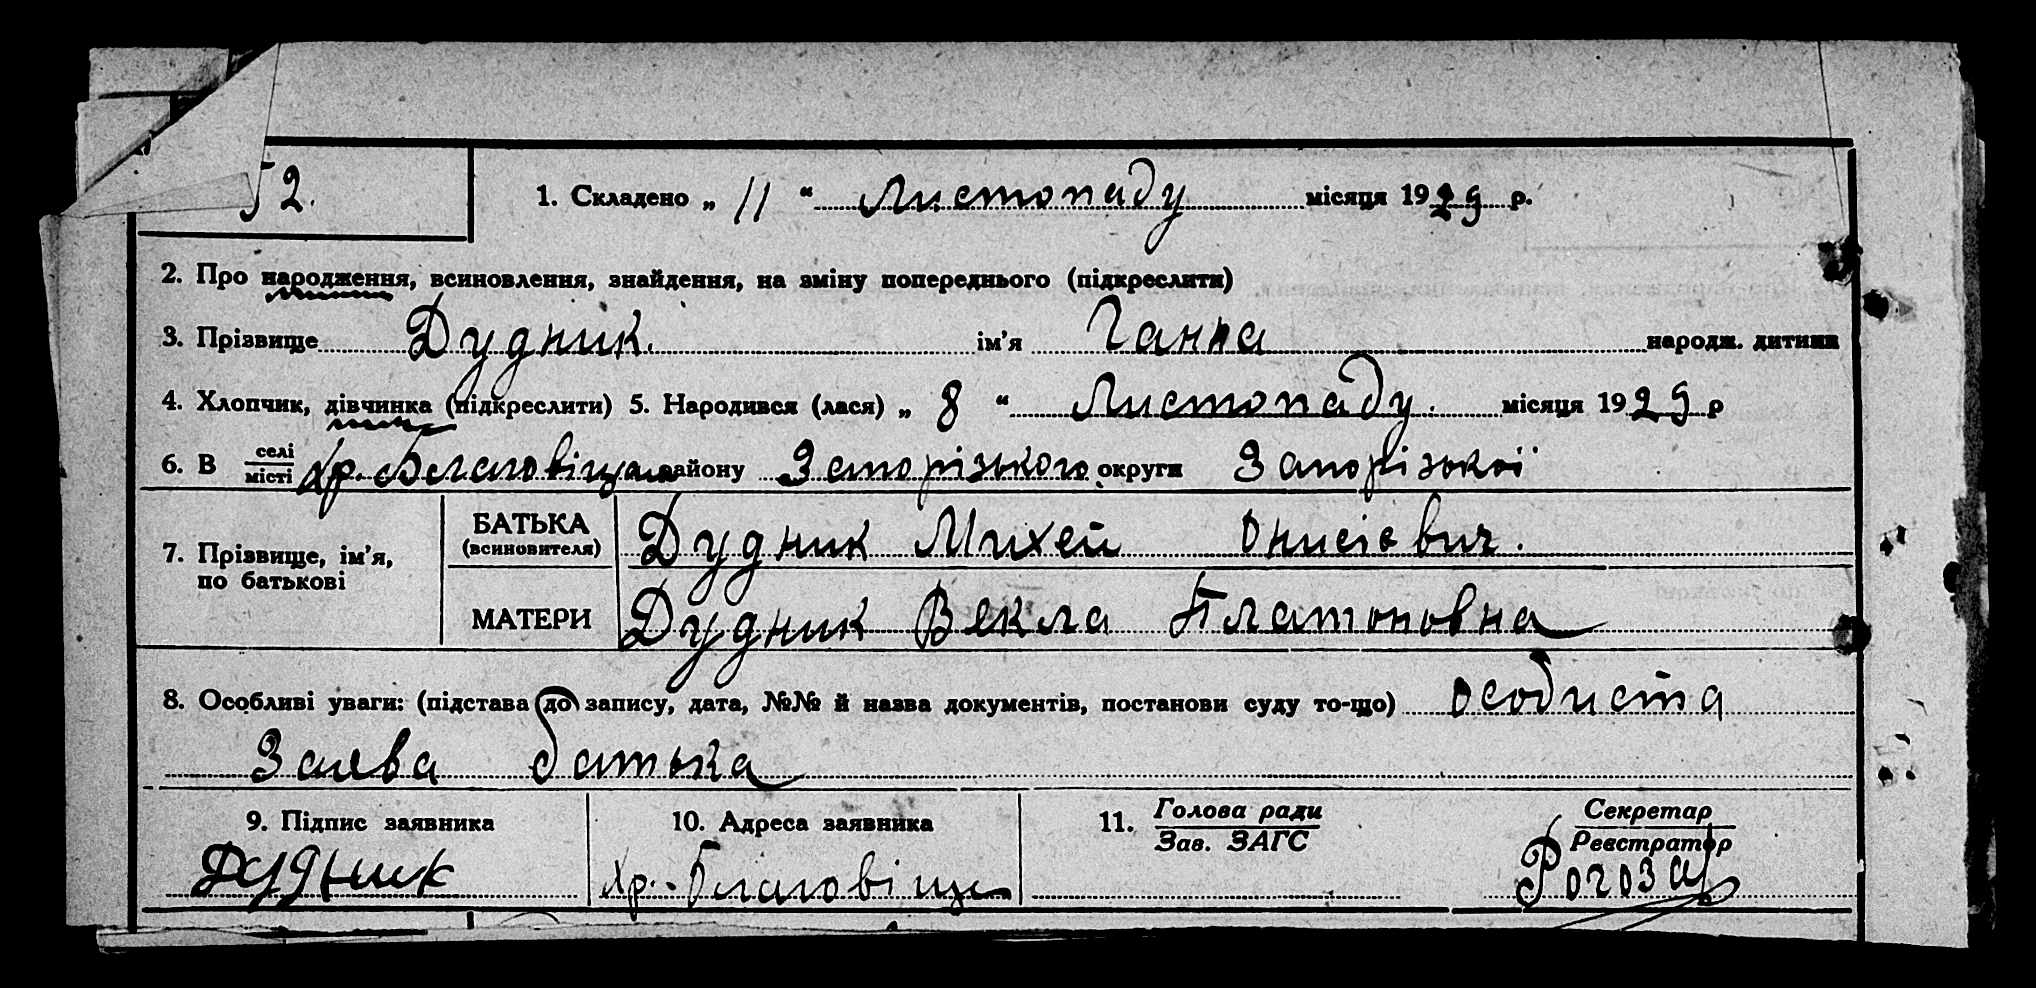 52.
1. Складено „ 11 “ Листопаду місяця 1929 р.
2. Про народження, всиновлення, знайдення, на зміну попереднього (підкреслити)
3. Прізвище Дудник. ім’я Ганна народж. дитини
4. Хлопчик, дівчинка (підкреслити) 5. Народився (лася) „ 8 “ Листопаду. місяця 1929 р
6. В селі/місті Хр. району Запорізького округи Запорізької
7. Прізвище, ім’я, по батькові
БАТЬКА (всиновителя) Дудник Михей Онисієвич.
МАТЕРИ Дудник Векла Платоновна
8. Особливі уваги: (підстава до запису, дата, №№ й назва документів, постанови суду то-що) особиста
Заява батька
9. Підпис заявника 10. Адреса заявника 11. Голова ради/Зав. ЗАГС Секретар/Реєстратор
Дудник Хр. Рогоза